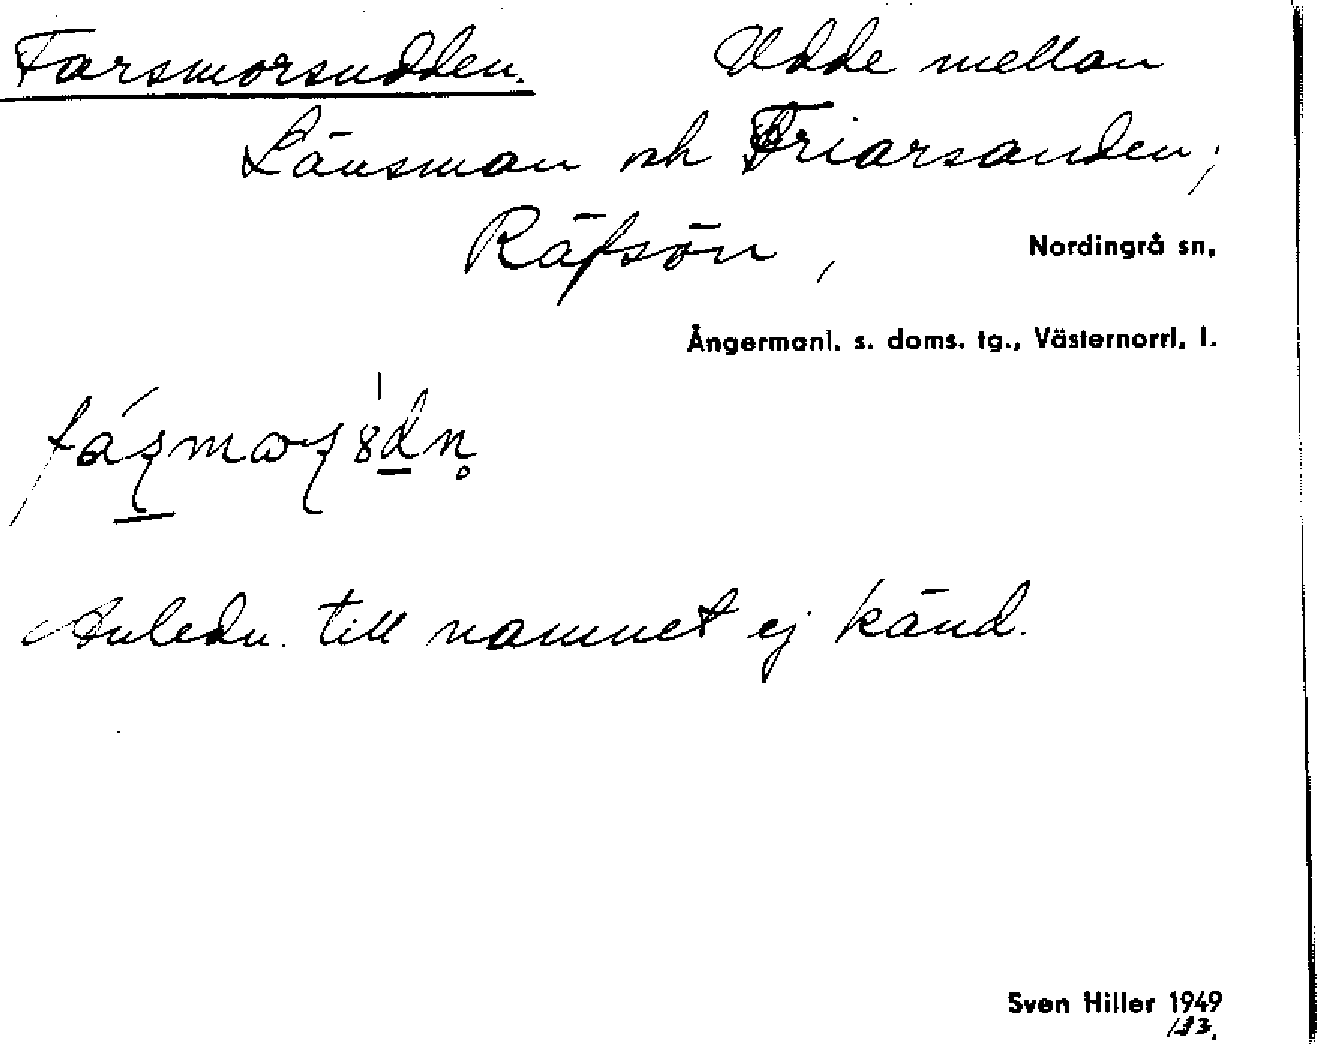 Farsmorsudden. Udde mellan
Länsman och Friarsanden,
Räfsön, Nordingrå sn,
Ångermanl. s. doms. tg., Västernorrl. l.
Anledn. till namnet ej känd.
Sven Hiller 1949